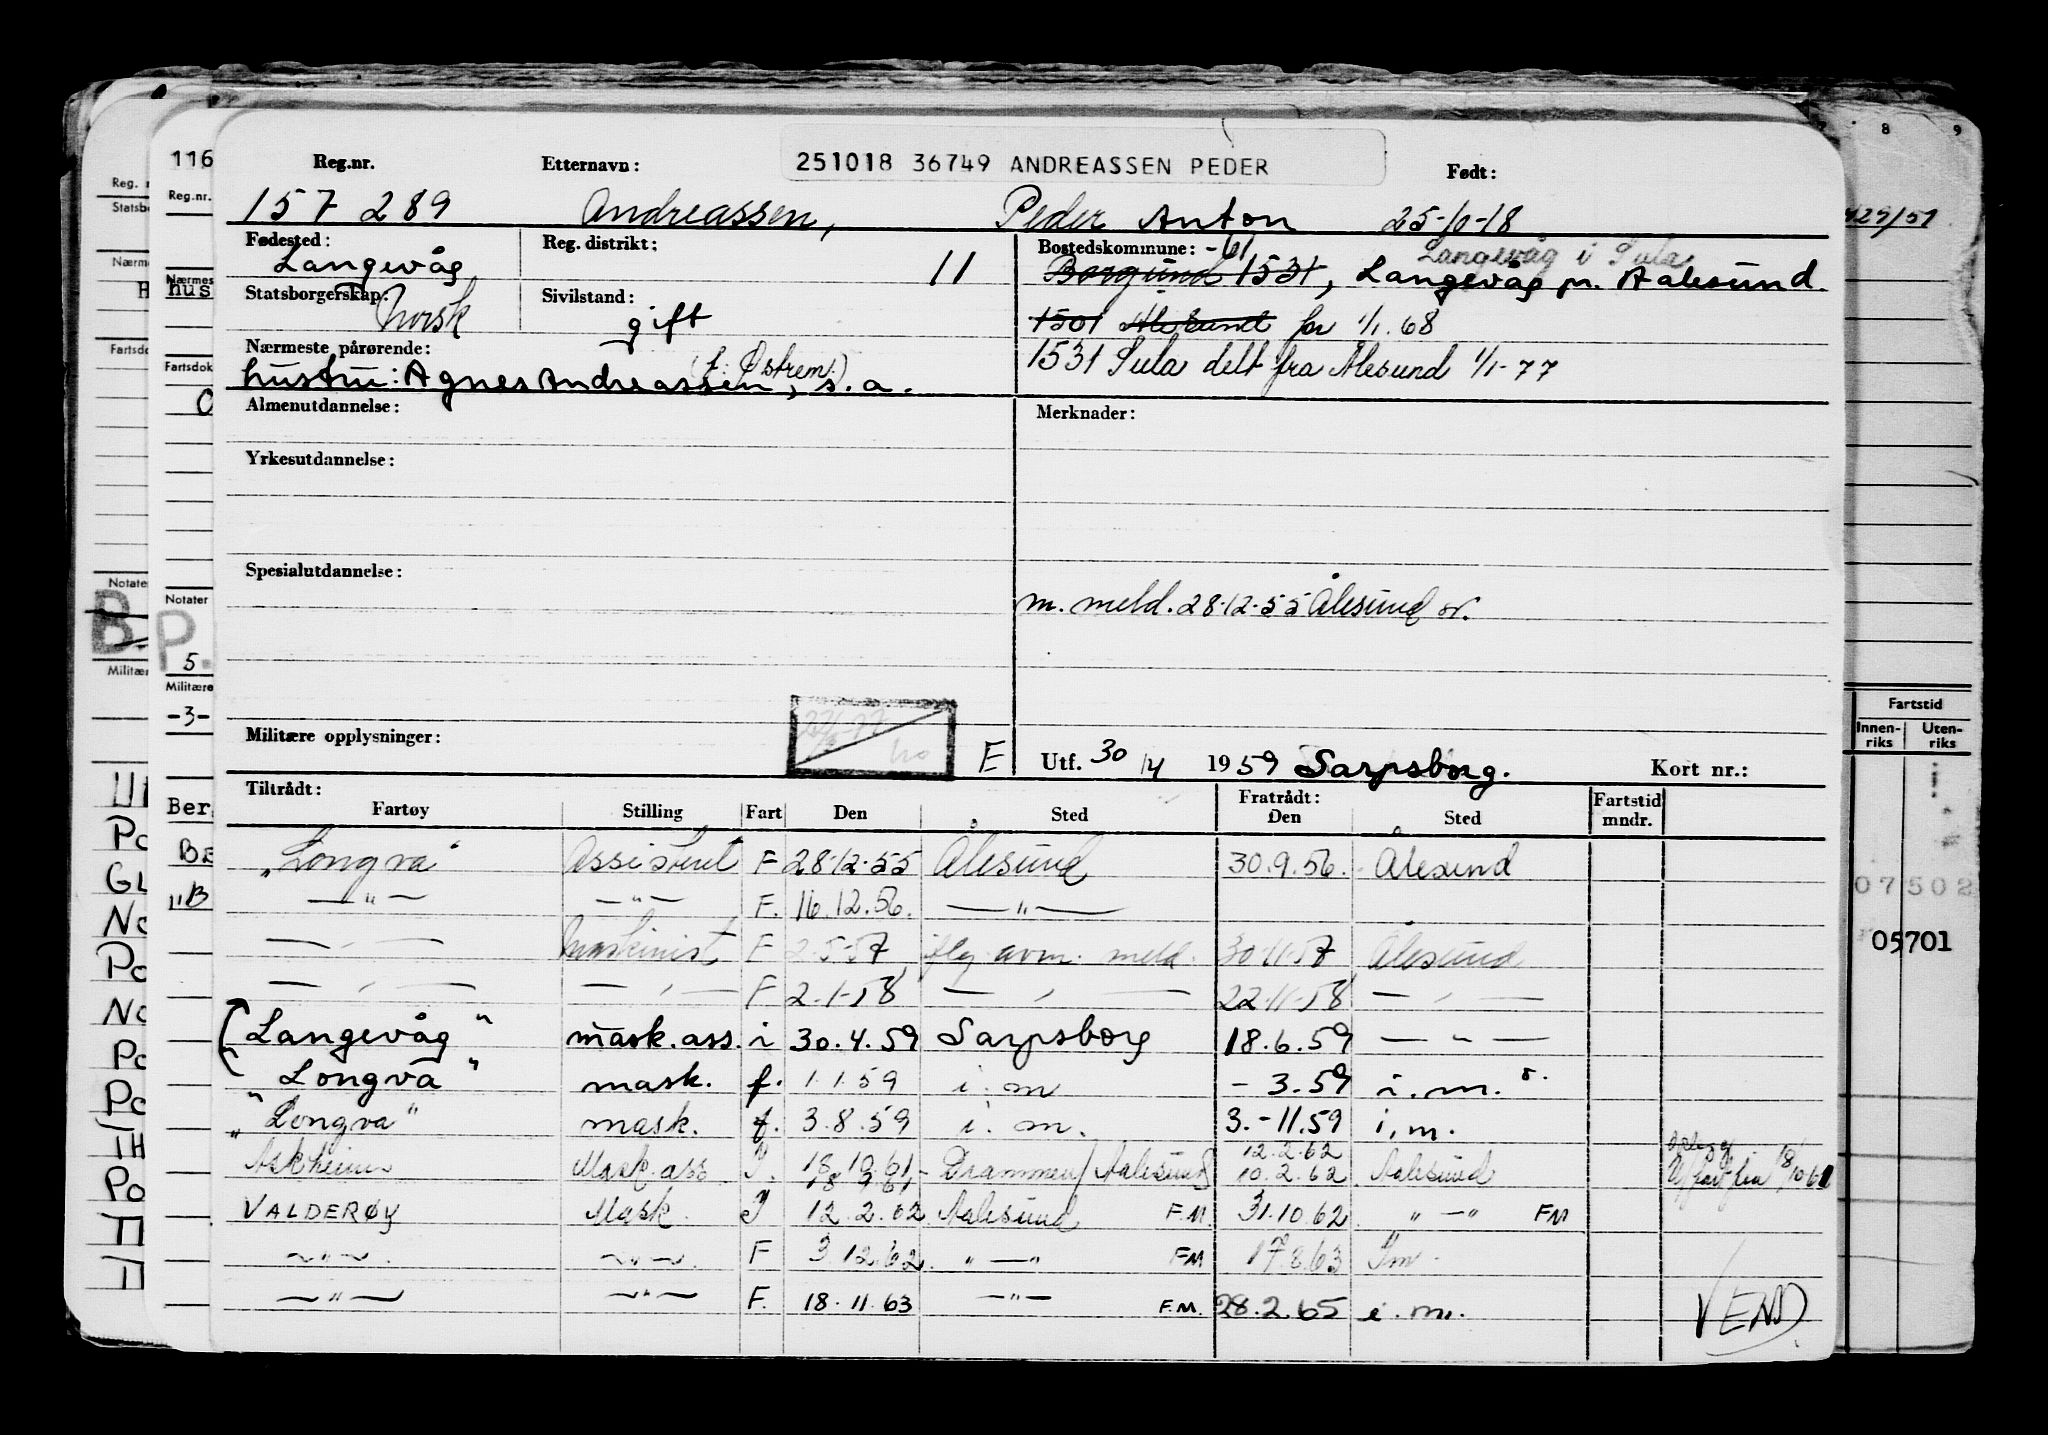 251018 36749 ANDREASSEN PEDER
Reg.nr. Etternavn: Født:
157 289 Andreassen, Peder Anton 25-10-18
Fødested: Reg. distrikt: Bostedskommune: -61 Langevåg i Sula
Langevåg 11 Borgund 1531, Langevåg pr. Aalesund.
Statsborgerskap: Sivilstand:
Norsk gift 1501 Ålesund før 1/1.68
Nærmeste pårørende: (f. Østrem.) 1531 Sula delt fra Ålesund 1/1-77
hustru: Agnes Andreassen, s.a.
Almenutdannelse: Merknader:
Yrkesutdannelse:
Spesialutdannelse:
m. meld. 28-12-55 Ålesund
Militære opplysninger: E Utf. 30/4 1959 Sarpsborg. Kort nr.:
Tiltrådt: Fratrådt: Fartstid
Fartøy Stilling Fart Den Sted Den Sted mndr.
"Longva" Assistent F 28-12-55 Ålesund 30.9.56. Ålesund
—"— —"— F. 16.12.56. —"—
—"— Maskinist F 2-5-57 iflg. avm. meld. 30-11-57 Ålesund
—"— —"— F 2-1-58 —"— 22-11-58 —"—
Langevåg" mask.ass. i 30.4.59 Sarpsborg 18.6.59 —"—
Longva" mask. f. 1.1.59 i.m - 3.59 i.m.
"Longva" mask. f. 3.8.59 i.m. 3.-11.59 i.m.
12.2.62
Askheim Mask.ass 18.10.61 Drammen/Aalesund 10.2.62 Aalesund 18/10 61
VALDERØY Mask. 12.2.62 Aalesund F.M. 31.10.62 "—" FM
—"— —"— F 3.12.62 "—" FM 17.8.63 Im
—"— —"— F. 18.11.63 —"— F.M. 28.2.65 i.m.
VEND
116
Reg.nr.
hus
Fartsdok
Notater
5
Militære
-3-
Ber
BE
"B
B.
P.
Reg. n
Statsb
Nærme
Fartsdo
Notate
Militær
Po
GL
No
Po
No
Po
Po
TH
Po
8 9
Fartstid
Innen-riks Uten-riks
07502
05701